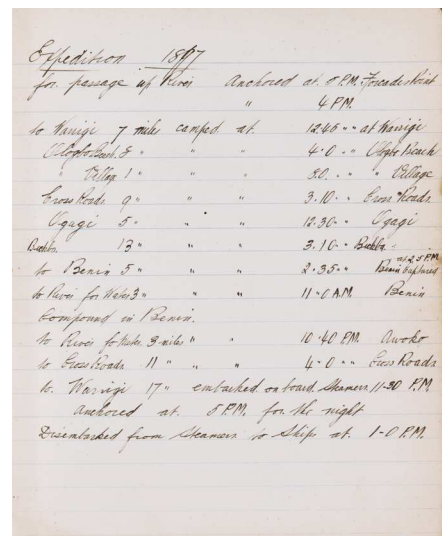 Expedition 1897
for passage up River Anchored at 5 P.M. Forcados Point
" 4 P.M.
to Warrigi 7 miles camped at. 12.45 " " at Warrigi
Ologbo Beach. 8 " " " 4.0 " " Ologbo Beach
" Village 1 " " " 5.0. " " " Village
Cross Roads. 9 " " " 3.10. " " Cross Roads.
Ogagi 5 " " " 12.30. " " Ogagi
13 " " " 3.10 "
to Benin 5 " " " 2.35 " " Benin Captured at 2,5 P.M.
to River for Water 3 " " " 11.0 A.M. Benin
Compound in Benin.
to River for Water. 3 miles " " 10.40 P.M. Awoko
to Cross Roads. 11 " " " 4.0 " " Cross Roads
to. Warrigi 17 " embarked on board Steamers 11-30 P.M.
Anchored at. 5 P.M. for the night
Disembarked from Steamers to Ships at. 1-0 P.M.